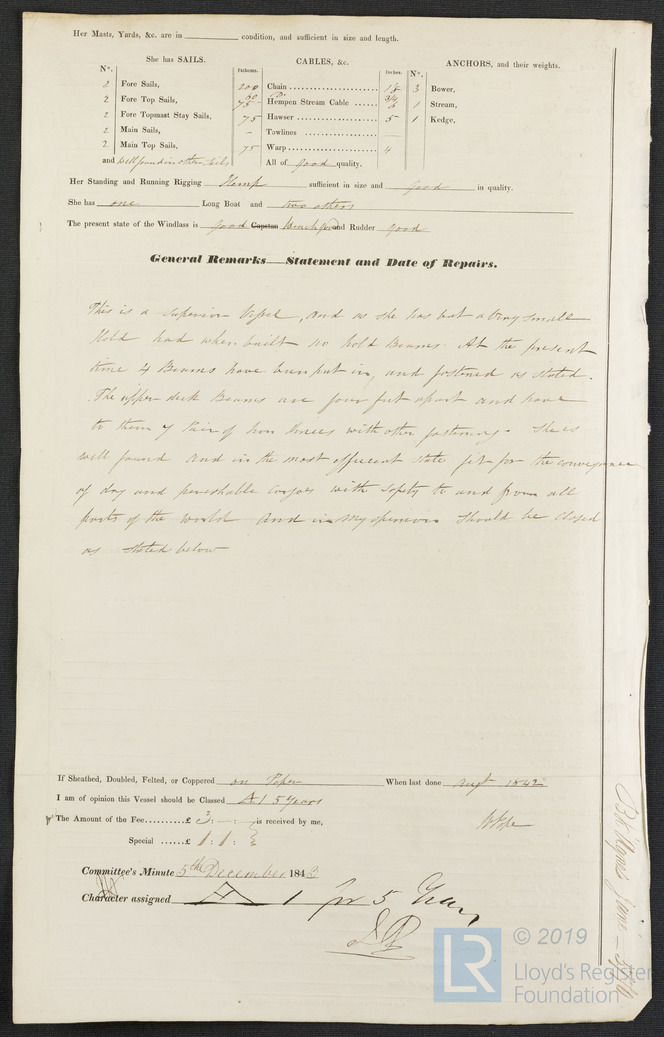 Her Masts, Yards, &c. are in condition, and sufficient in size and length.
She has SAILS.
CABLES, &c.
ANCHORS, and their weights.
N°.
Fathoms.
Inches.
N°.
2 Fore Sails, 200 Chain 3 Bower,
2 Fore Top Sails, 75 Hempen Stream Cable 6 1 Stream,
2 Fore Topmast Stay Sails, 75 Hawser 5 1 Kedge.
2 Main Sails, – Towlines –
2 Main Top Sails, 75 Warp 4
and well found in other sails All of good quality.
Her Standing and Running Rigging Hemp sufficient in size and good in quality.
She has one Long Boat and two others
The present state of the Windlass is good Capstan Winch good and Rudder good
General Remarks—Statement and Date of Repairs.
This is a superior Vessel, and as she has but a very small
Hold had when built no hold Beams. At the present
time 4 Beams have been put in, and fastened as stated.
The upper deck Beams are four feet apart and have
to them 7 Pair of Iron Knees with other fastenings. She is
well found and in the most efficient state fit for the conveyance
of dry and perishable cargoes with safety to and from all
parts of the world and in my opinion should be Classed
as stated below
If Sheathed, Doubled, Felted, or Coppered on Paper When last done Augt 1842
I am of opinion this Vessel should be Classed A 1 5 Years
The Amount of the Fee £ 3 : – : – is received by me,
Special £ 1 : 1 :
W Pope
Committee's Minute 5th December 1843
Character assigned A 1 for 5 Years
Bk Agnes Jane
LR
© 2019
Lloyd's Register
Foundation